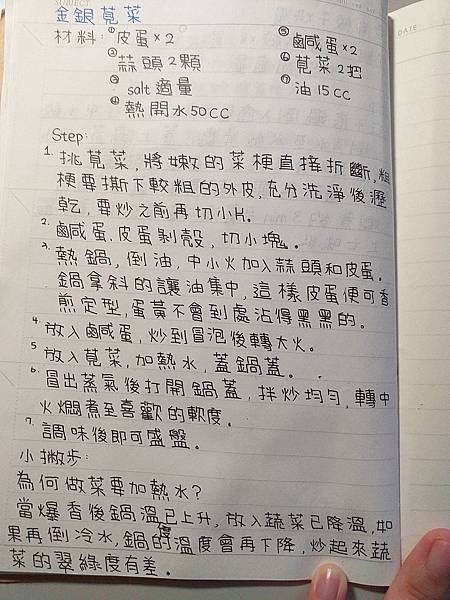 SUBJECT
DATE
金銀莧菜
材料:①皮蛋×2 ⑤鹹蛋×2
②蒜頭2顆 ⑥莧菜2把
③salt適量 ⑦油15CC
④熱開水50CC
Step:
1. 挑莧菜,將嫩的菜梗直接折斷,粗
梗要撕下較粗的外皮,充分洗淨後瀝
乾,要炒之前再切小片。
2. 鹹蛋.皮蛋剝殼,切小塊。
3. 熱鍋,倒油,中小火加入蒜頭和皮蛋。
鍋拿斜的讓油集中,這樣皮蛋便可香
煎定型,蛋黃不會到處沾得黑黑的。
4. 放入鹹蛋,炒到冒泡後轉大火。
5. 放入莧菜,加熱水,蓋鍋蓋。
6. 冒出蒸氣後打開鍋蓋,拌炒均勻,轉中
火燜煮至喜歡的軟度。
7. 調味後即可盛盤。
小撇步:
為何做菜要加熱水?
當爆香後鍋溫已上升,放入蔬菜已降溫,如
果再倒冷水,鍋的溫度會再下降,炒起來蔬
菜的翠綠度有差。